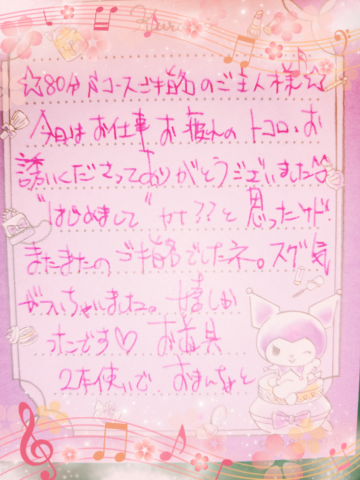 ☆80分Aコースご指名のご主人様☆
今日はお仕事お疲れのトコロ、お
誘いくださってありがとうございました♡
"はじめまして"かナ??と思ったケド
またまたのご指名でしたネ。スグ気
がついちゃいました。嬉しか
ったです♡ お道具
2本使いで、おまんちょと